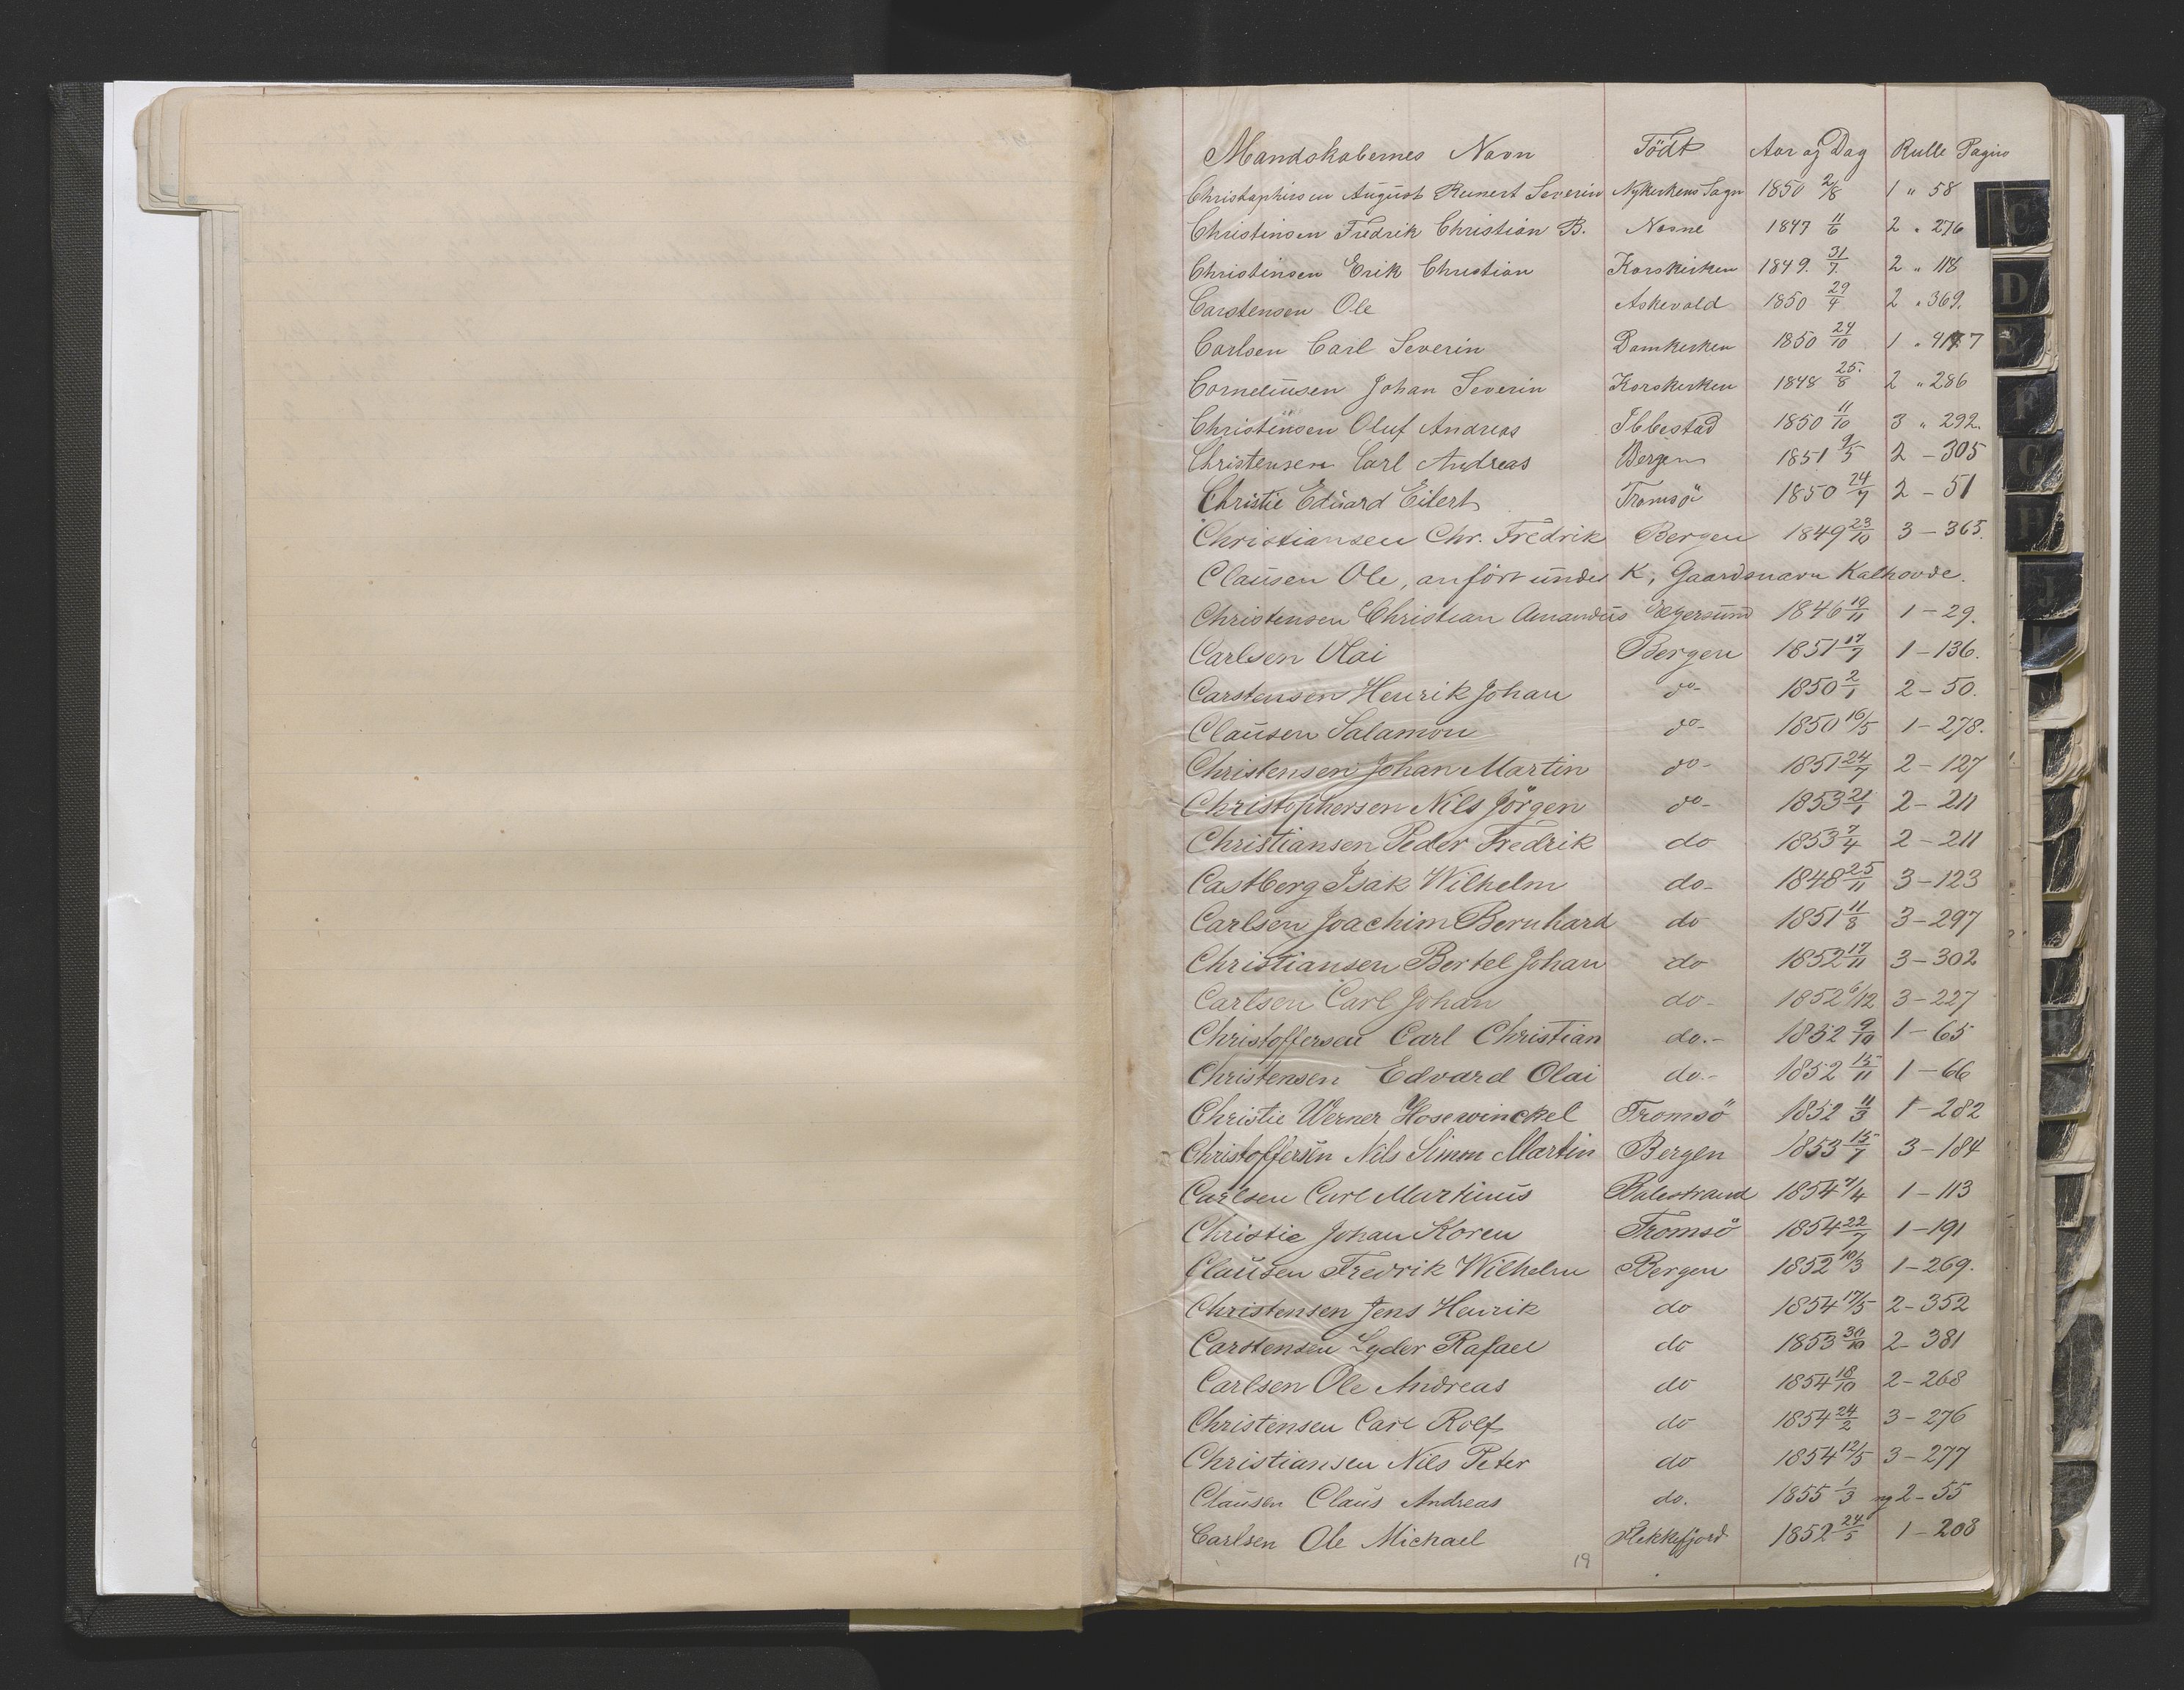 Mandskabernes Navn Födt Aar og Dag Rulle Pagina
Christophersen August Reinert Severin Nykirkens Sogn 1850 2/8 1 " 58
Christensen Fredrik Christian B. Nesne 1847 11/6 2 " 276
Christensen Erik Christian Korskirken 1849. 31/7 2 " 118
Carstensen Ole Askevold 1850 29/4 2 " 369.
Carlsen Carl Severin Domkirken 1850 24/10 1 "
Corneliusen Johan Severin Korskirken 1848 25/8 2 " 286
Christensen Oluf Andreas Ibbestad 1850 11/10 3 " 292.
Christensen Carl Andreas Bergen 1851 9/5 2 - 305
Christie Edvard Eilert Tromsö 1850 24/7 2 - 51
Christiansen Chr. Fredrik Bergen 1849 23/10 3 - 365.
Clausen Ole, anfört under K, Gaardsnavn Kalhovde.
Christensen Christian Amandus Egersund 1846 19/11 1 - 29.
Carlsen Olai Bergen 1851 17/7 1 - 136.
Carstensen Henrik Johan do- 1850 2/1 2 - 50.
Clausen Salamon do- 1850 16/5 1 - 278.
Christensen Johan Martin do- 1851 24/7 2 - 127
Christophersen Nils Jörgen do- 1853 21/1 2 - 211
Christiansen Peder Fredrik do 1853 7/4 2 - 211
Castberg Isak Wilhelm do- 1848 25/11 3 - 123
Carlsen Joachim Bernhard do 1851 11/8 3 - 297
Christiansen Bertel Johan do 1852 17/11 3 - 302
Carlsen Carl Johan do- 1852 6/12 3 - 227
Christoffersen Carl Christian do.- 1852 9/10 1 - 65
Christensen Edvard Olai do.- 1852 15/11 1 - 66
Christie Werner Hosewinckel Tromsö 1852 11/3 1 - 282
Christoffersen Nils Simon Martin Bergen 1853 15/7 3 - 184
Carlsen Carl Martinus Balestrand 1854 7/4 1 - 113
Christie Johan Koren Tromsö 1854 22/7 1 - 191
Clausen Fredrik Wilhelm Bergen 1852 10/3 1 - 269.
Christensen Jens Henrik do 1854 17/5 2 - 352
Carstensen Lyder Rafael do 1853 30/10 2 - 381
Carlsen Ole Andreas do 1854 18/10 2 - 268
Christensen Carl Rolf do 1854 24/2 3 - 276
Christiansen Nils Peter do 1854 12/5 3 - 277
Clausen Claus Andreas do. 1855 1/3 ny 2 - 55
Carlsen Ole Michael Flekkefjord 1852 24/5 1 - 208
19
C
D
E
F
G
H
J
K